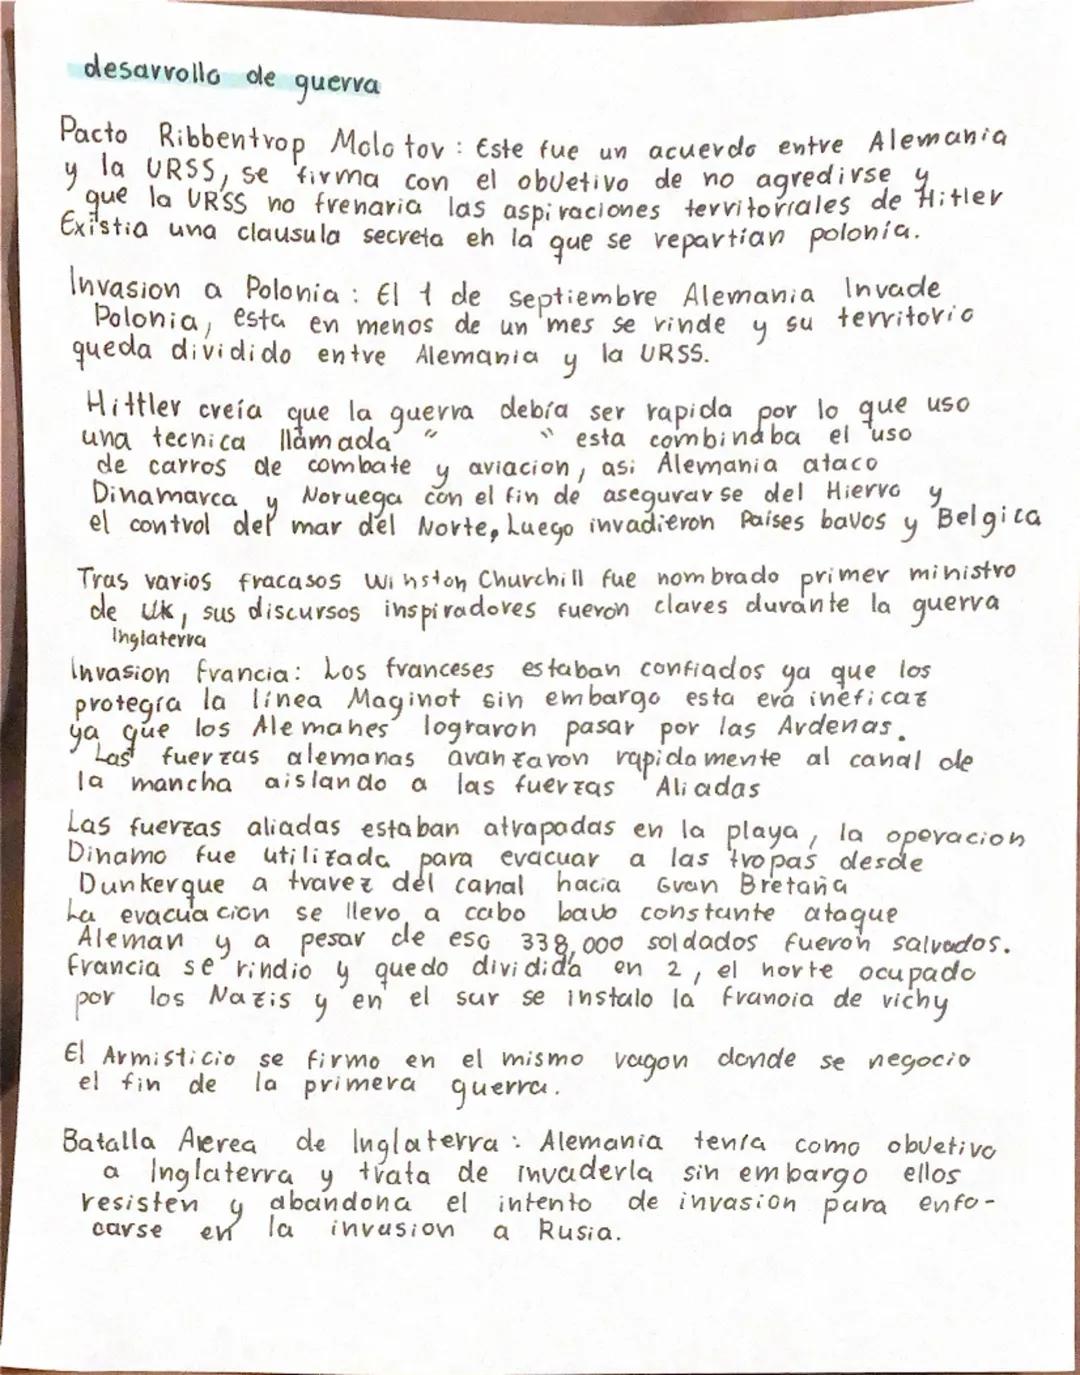 desarrollo de guerra
Pacto Ribbentrop Molotov: Este fue un acuerdo entre Alemania
y la URSS, se firma con el obvetivo de no agredirse y
que la URSS no frenaria las aspiraciones territoriales de Hitler
Existia una clausula secreta en la que se repartian polonia.
Invasion a Polonia: El 1 de septiembre Alemania Invade
Polonia, esta en menos de un mes se rinde y su territorio
queda dividido entre Alemania y la URSS.
Hittler creía que la guerra debía ser rapida por lo que uso
una tecnica llamada "          " esta combinaba el uso
de carros de combate y aviacion, asi Alemania ataco
Dinamarca y Noruega con el fin de asegurarse del Hierro y
el control del mar del Norte, Luego invadieron Países bavos y Belgica
Tras varios fracasos Winston Churchill fue nombrado primer ministro
de UK, sus discursos inspiradores fueron claves durante la guerra
Inglaterra
Invasion francia: Los franceses estaban confiados ya que los
protegía la línea Maginot sin embargo esta era ineficaz
ya que los Alemanes lograron pasar por las Ardenas.
Las fuerzas alemanas avanzaron rapidamente al canal de
la mancha aislando a las fuerzas Aliadas
Las fuerzas aliadas estaban atrapadas en la playa, la operacion
Dinamo fue utilizada para evacuar a las tropas desde
Dunkerque a travez del canal hacia Gran Bretaña
La evacuacion se llevo a cabo bavo constante ataque
Aleman y a pesar de eso 338,000 soldados fueron salvados.
francia se rindio y quedo dividida en 2, el norte ocupado
por los Nazis y en el sur se instalo la francia de vichy
El Armisticio se firmo en el mismo vagon donde se negocio
el fin de la primera guerra.
Batalla Aerea de Inglaterra: Alemania tenía como obvetivo
a Inglaterra y trata de invaderla sin embargo ellos
resisten y abandona el intento de invasion para enfo-
carse en la invasion a Rusia.